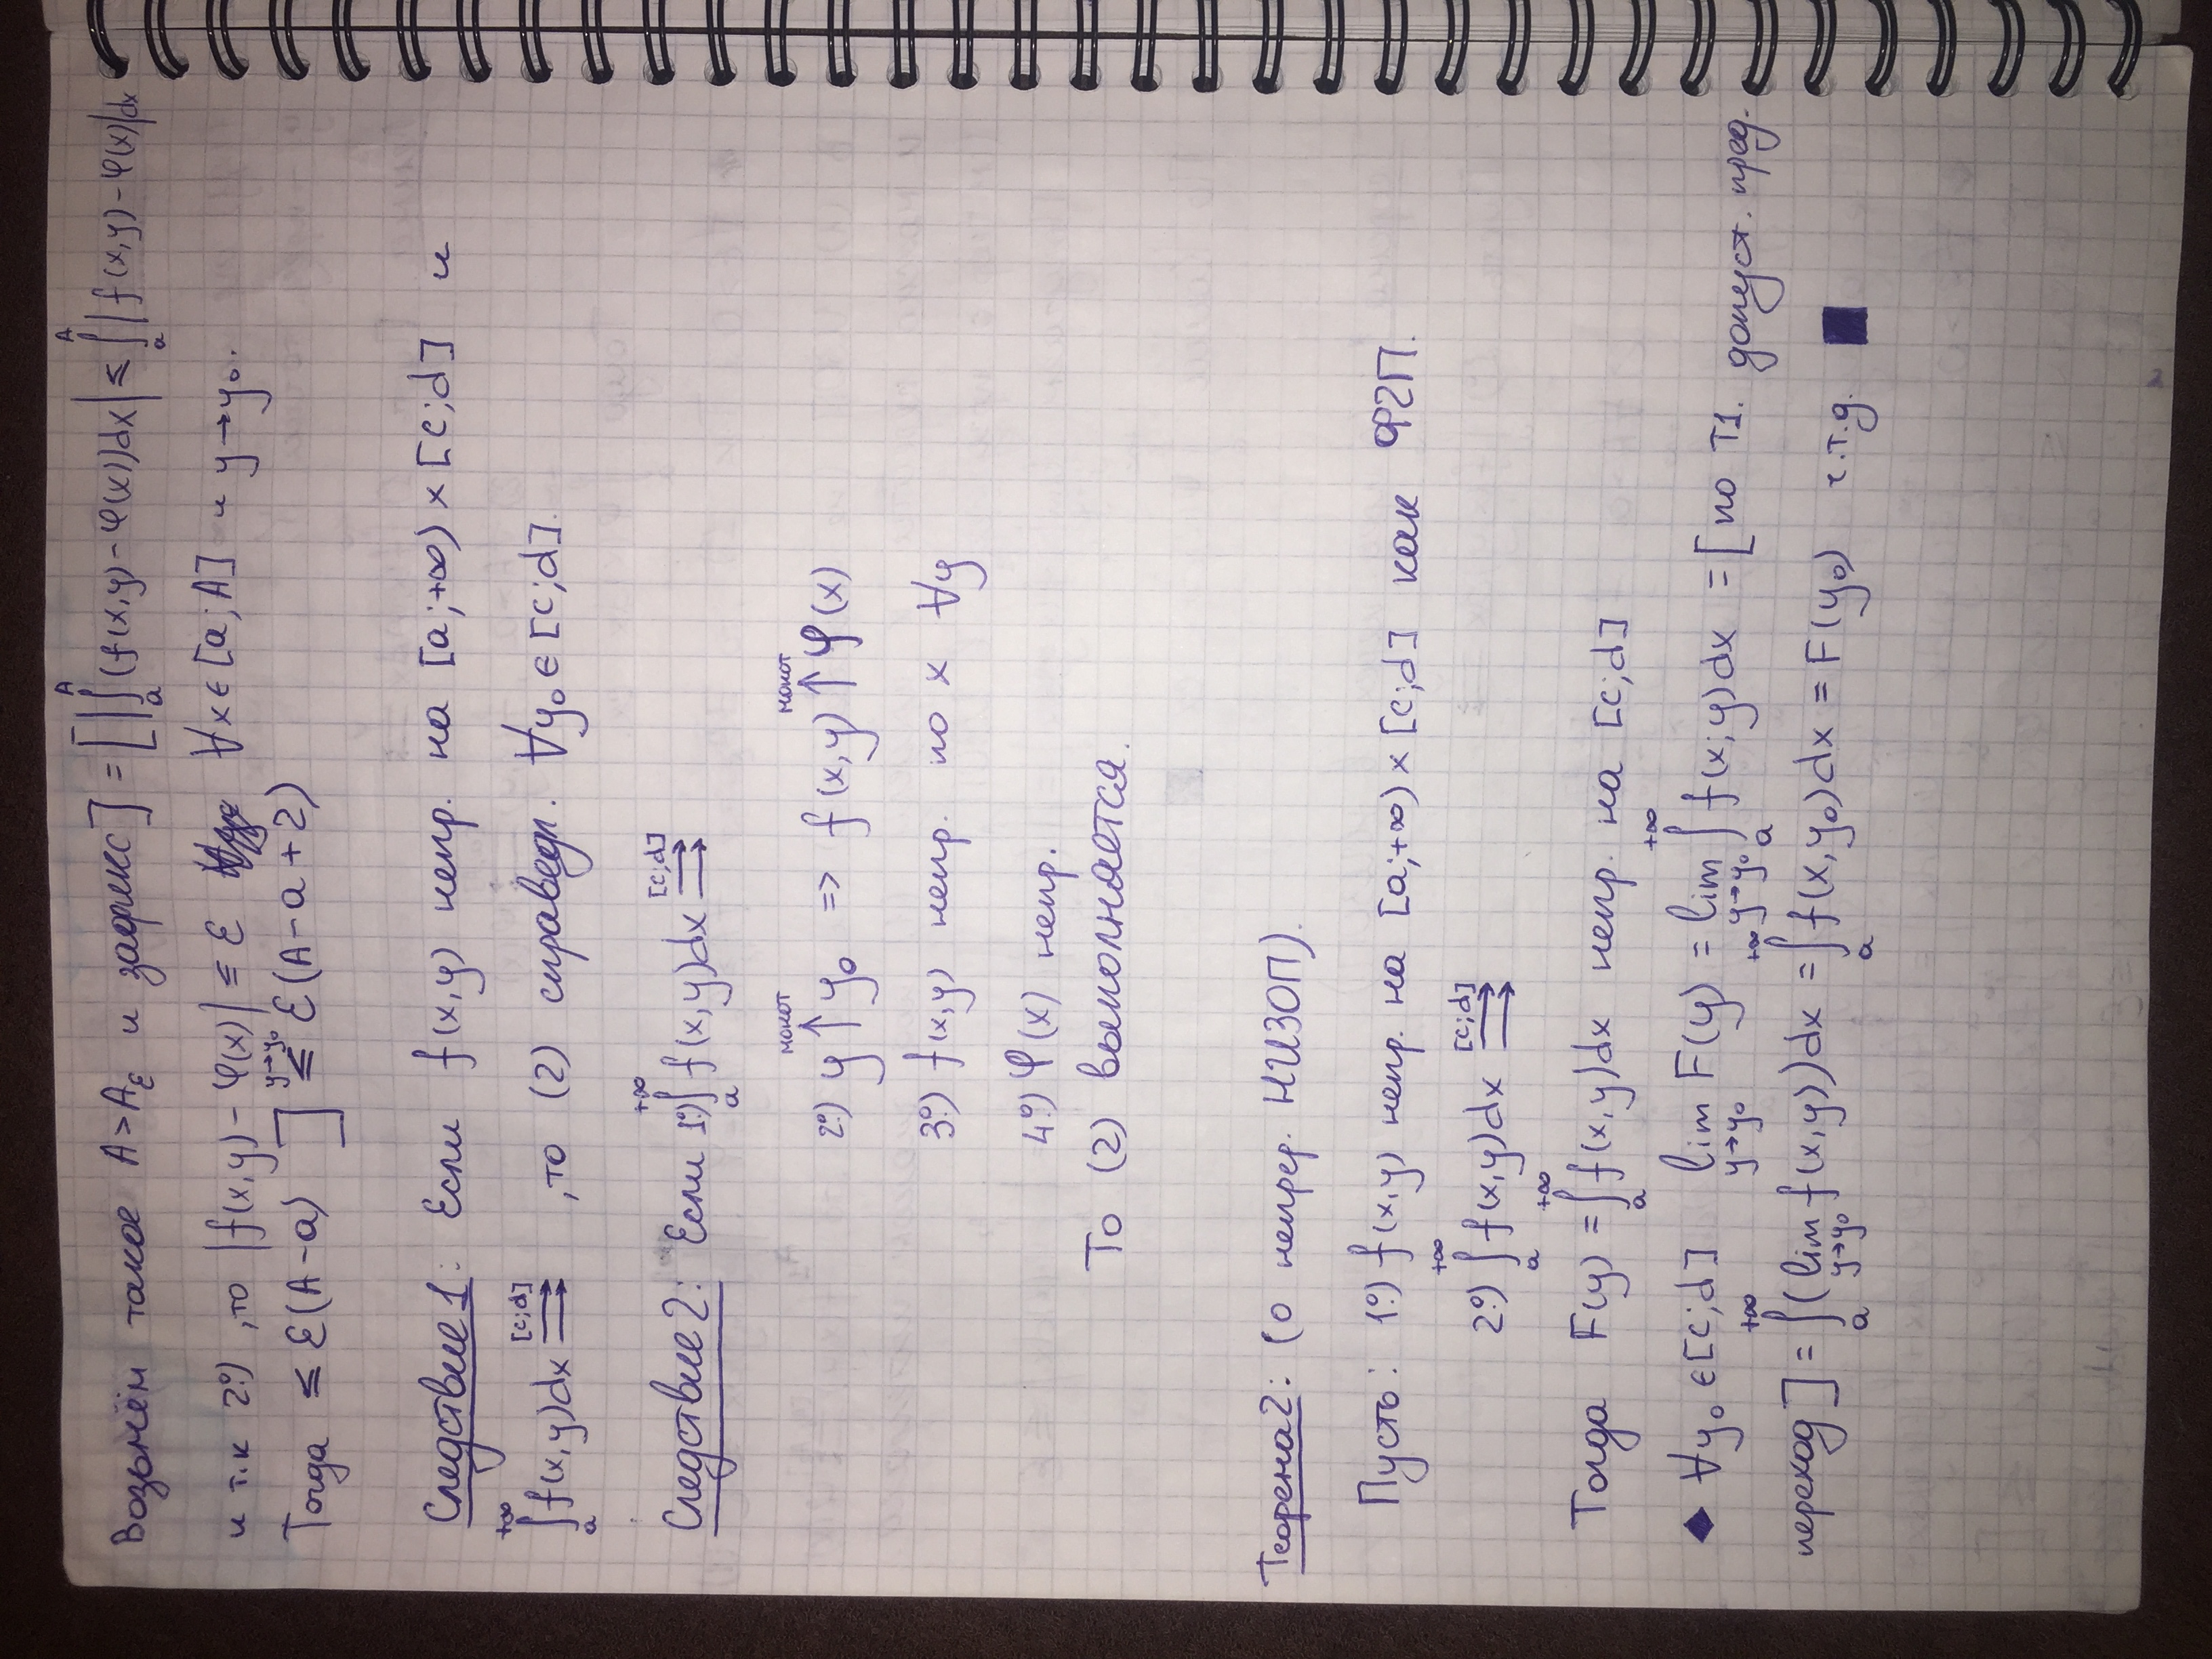 Возьмём такое A>A_ε и зафикс] = [|∫_a^A (f(x,y)-φ(x))dx| ≤ ∫_a^A |f(x,y)-φ(x)|dx
и т.к 2°), то |f(x,y)-φ(x)| ≤ ε ∀x∈[a;A] и y→y₀.
Тогда ≤ ε(A-a) ] ≤^{y→y₀} ε(A-a+2)
Следствие 1: Если f(x,y) непр. на [a;+∞)×[c;d] и
∫_a^{+∞} f(x,y)dx ⇉^{[c;d]} , то (2) справедл. ∀y₀∈[c;d].
Следствие 2: Если 1°) ∫_a^{+∞} f(x,y)dx ⇉^{[c;d]}
2°) y ↑^{монот} y₀ => f(x,y) ↑^{монот} φ(x)
3°) f(x,y) непр. по x ∀y
4°) φ(x) непр.
То (2) выполняется.
Теорема 2: (о непрер. НИЗОП).
Пусть: 1°) f(x,y) непр. на [a;+∞)×[c;d] как Ф2П.
2°) ∫_a^{+∞} f(x,y)dx ⇉^{[c;d]}
Тогда F(y) = ∫_a^{+∞} f(x,y)dx непр. на [c;d]
◆ ∀y₀∈[c;d] lim_{y→y₀} F(y) = lim_{y→y₀} ∫_a^{+∞} f(x;y)dx = [по т1. допуст. пред.
переход] = ∫_a^{+∞} (lim_{y→y₀} f(x,y))dx = ∫_a^{+∞} f(x,y₀)dx = F(y₀) ч.т.д. ■